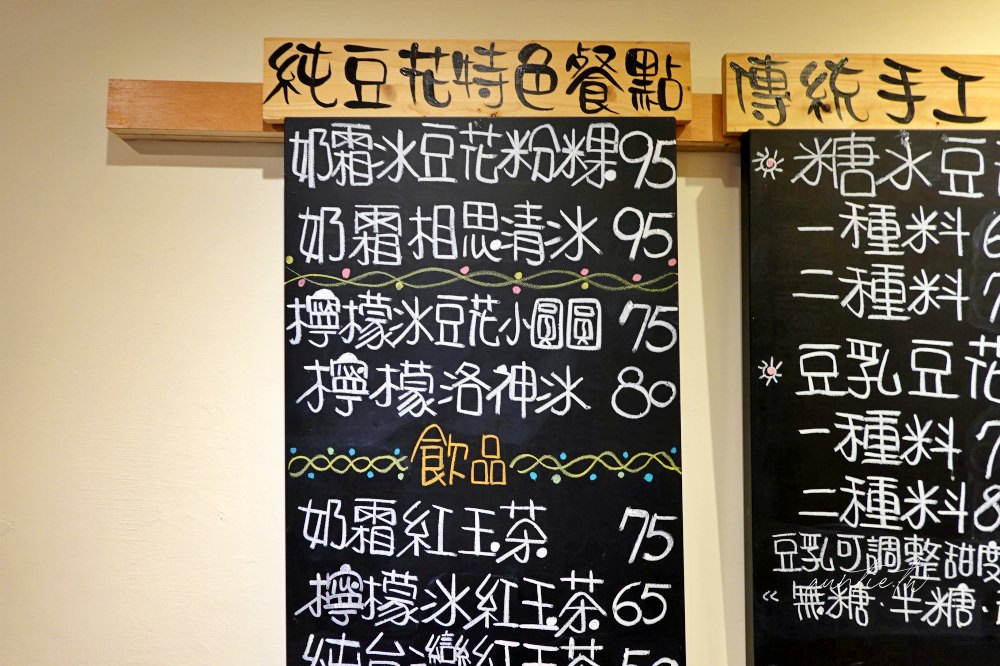 純豆花特色餐點
奶霜冰豆花粉粿95
奶霜相思清冰 95
檸檬冰豆花小圓圓 75
檸檬洛神冰 80
飲品
奶霜紅玉茶 75
檸檬冰紅玉茶65
純台灣紅玉茶 50
傳統手工
糖水豆
一種料 6
二種料 7
豆乳豆花
一種料 7
二種料8
豆乳可調整甜度
auntie.tw
無糖·半糖·